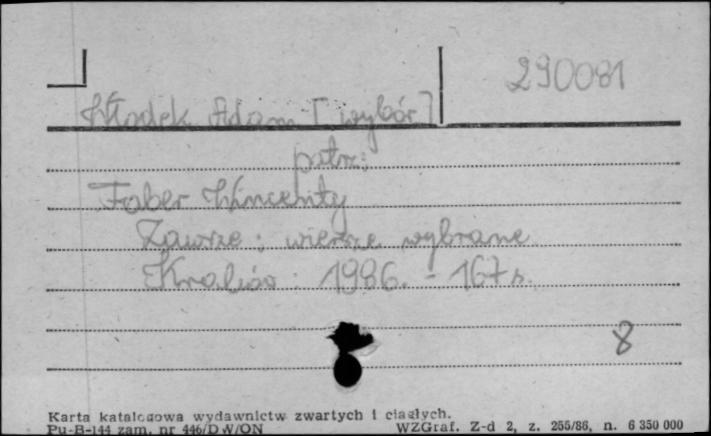 290081
Włodek Adam [wybór]
patrz:
Faber Wincenty
Zawsze : wiersze wybrane
Kraków : 1986. - 167 s.
8
Karta katalogowa wydawnictw zwartych i ciągłych.
Pu-B-144 zam. nr 446/DW/ON WZGraf. Z-d 2, z. 255/86, n. 6 350 000